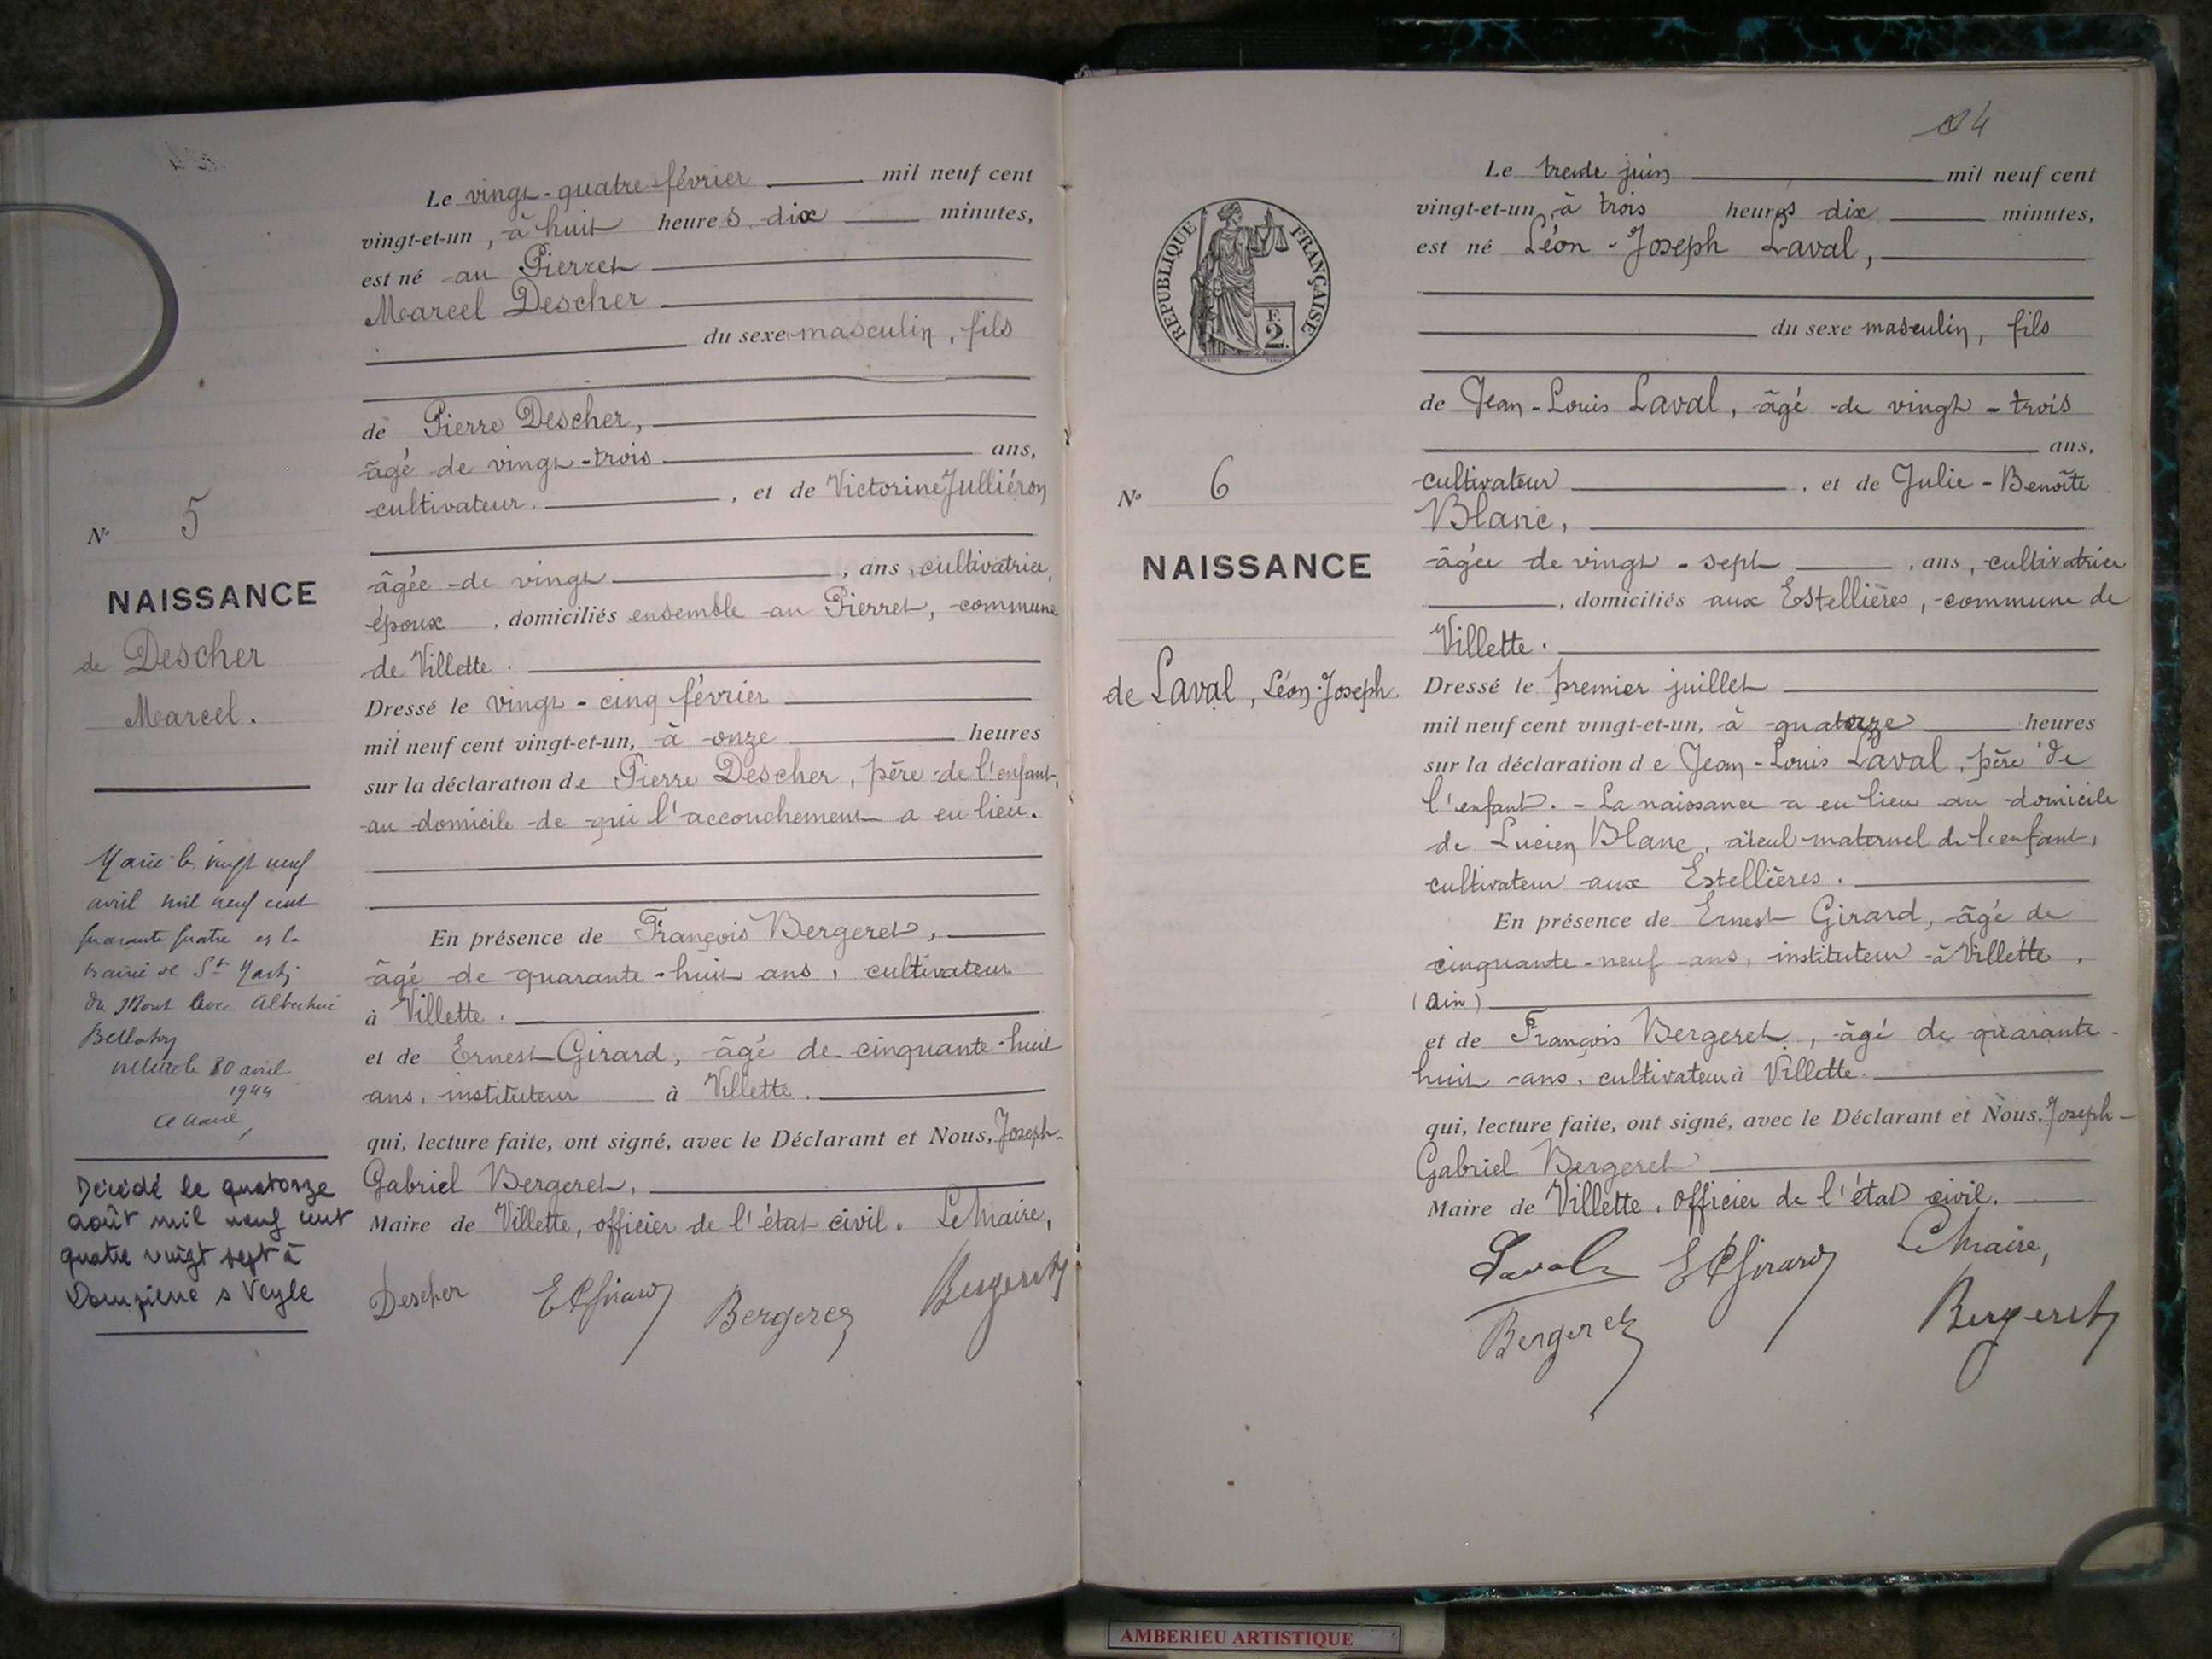 Le vingt-quatre février mil neuf cent
vingt-et-un, à huit heures dix minutes,
est né au Pierret
Marcel Descher
du sexe masculin, fils
de Pierre Descher,
âgé de vingt-trois ans,
cultivateur, et de Victorine Julliéron
âgée de vingt, ans, cultivatrice,
époux, domiciliés ensemble au Pierret, commune
de Villette.
Dressé le vingt-cinq février
mil neuf cent vingt-et-un, à onze heures
sur la déclaration de Pierre Descher, père de l'enfant,
au domicile de qui l'accouchement a eu lieu.
En présence de François Bergeret,
âgé de quarante-huit ans, cultivateur
à Villette.
et de Ernest Girard, âgé de cinquante-huit
ans, instituteur à Villette.
qui, lecture faite, ont signé, avec le Déclarant et Nous, Joseph-
Gabriel Bergeret,
Maire de Villette, officier de l'état civil. Le Maire,
Descher EGirard Bergeret Bergeret
N° 5
NAISSANCE
de Descher
Marcel.
Marié le vingt neuf
avril mil neuf cent
quarante quatre
mairie de St
du Mont avec Albertine
30 avril
1944
Le Maire,
Décédé le quatorze
août mil neuf cent
quatre vingt sept à
s Veyle
14
Le trente juin mil neuf cent
vingt-et-un, à trois heures dix minutes,
est né Léon-Joseph Laval,
du sexe masculin, fils
de Jean-Louis Laval, âgé de vingt-trois
ans,
cultivateur, et de Julie-Benoîte
Blanc,
âgée de vingt-sept, ans, cultivatrice
, domiciliés aux Estellières, commune de
Villette.
Dressé le premier juillet
mil neuf cent vingt-et-un, à quatorze heures
sur la déclaration de Jean-Louis Laval, père de
l'enfant. - La naissance a eu lieu au domicile
de Lucien Blanc, aïeul maternel de l'enfant,
cultivateur aux Estellières.
En présence de Ernest Girard, âgé de
cinquante-neuf ans, instituteur à Villette,
(Ain)
et de François Bergeret, âgé de quarante-
huit ans, cultivateur à Villette.
qui, lecture faite, ont signé, avec le Déclarant et Nous, Joseph-
Gabriel Bergeret
Maire de Villette, officier de l'état civil.
Laval EGirard Le Maire,
Bergeret Bergeret
RÉPUBLIQUE FRANÇAISE
F.
2.
N° 6
NAISSANCE
de Laval, Léon-Joseph.
AMBERIEU ARTISTIQUE